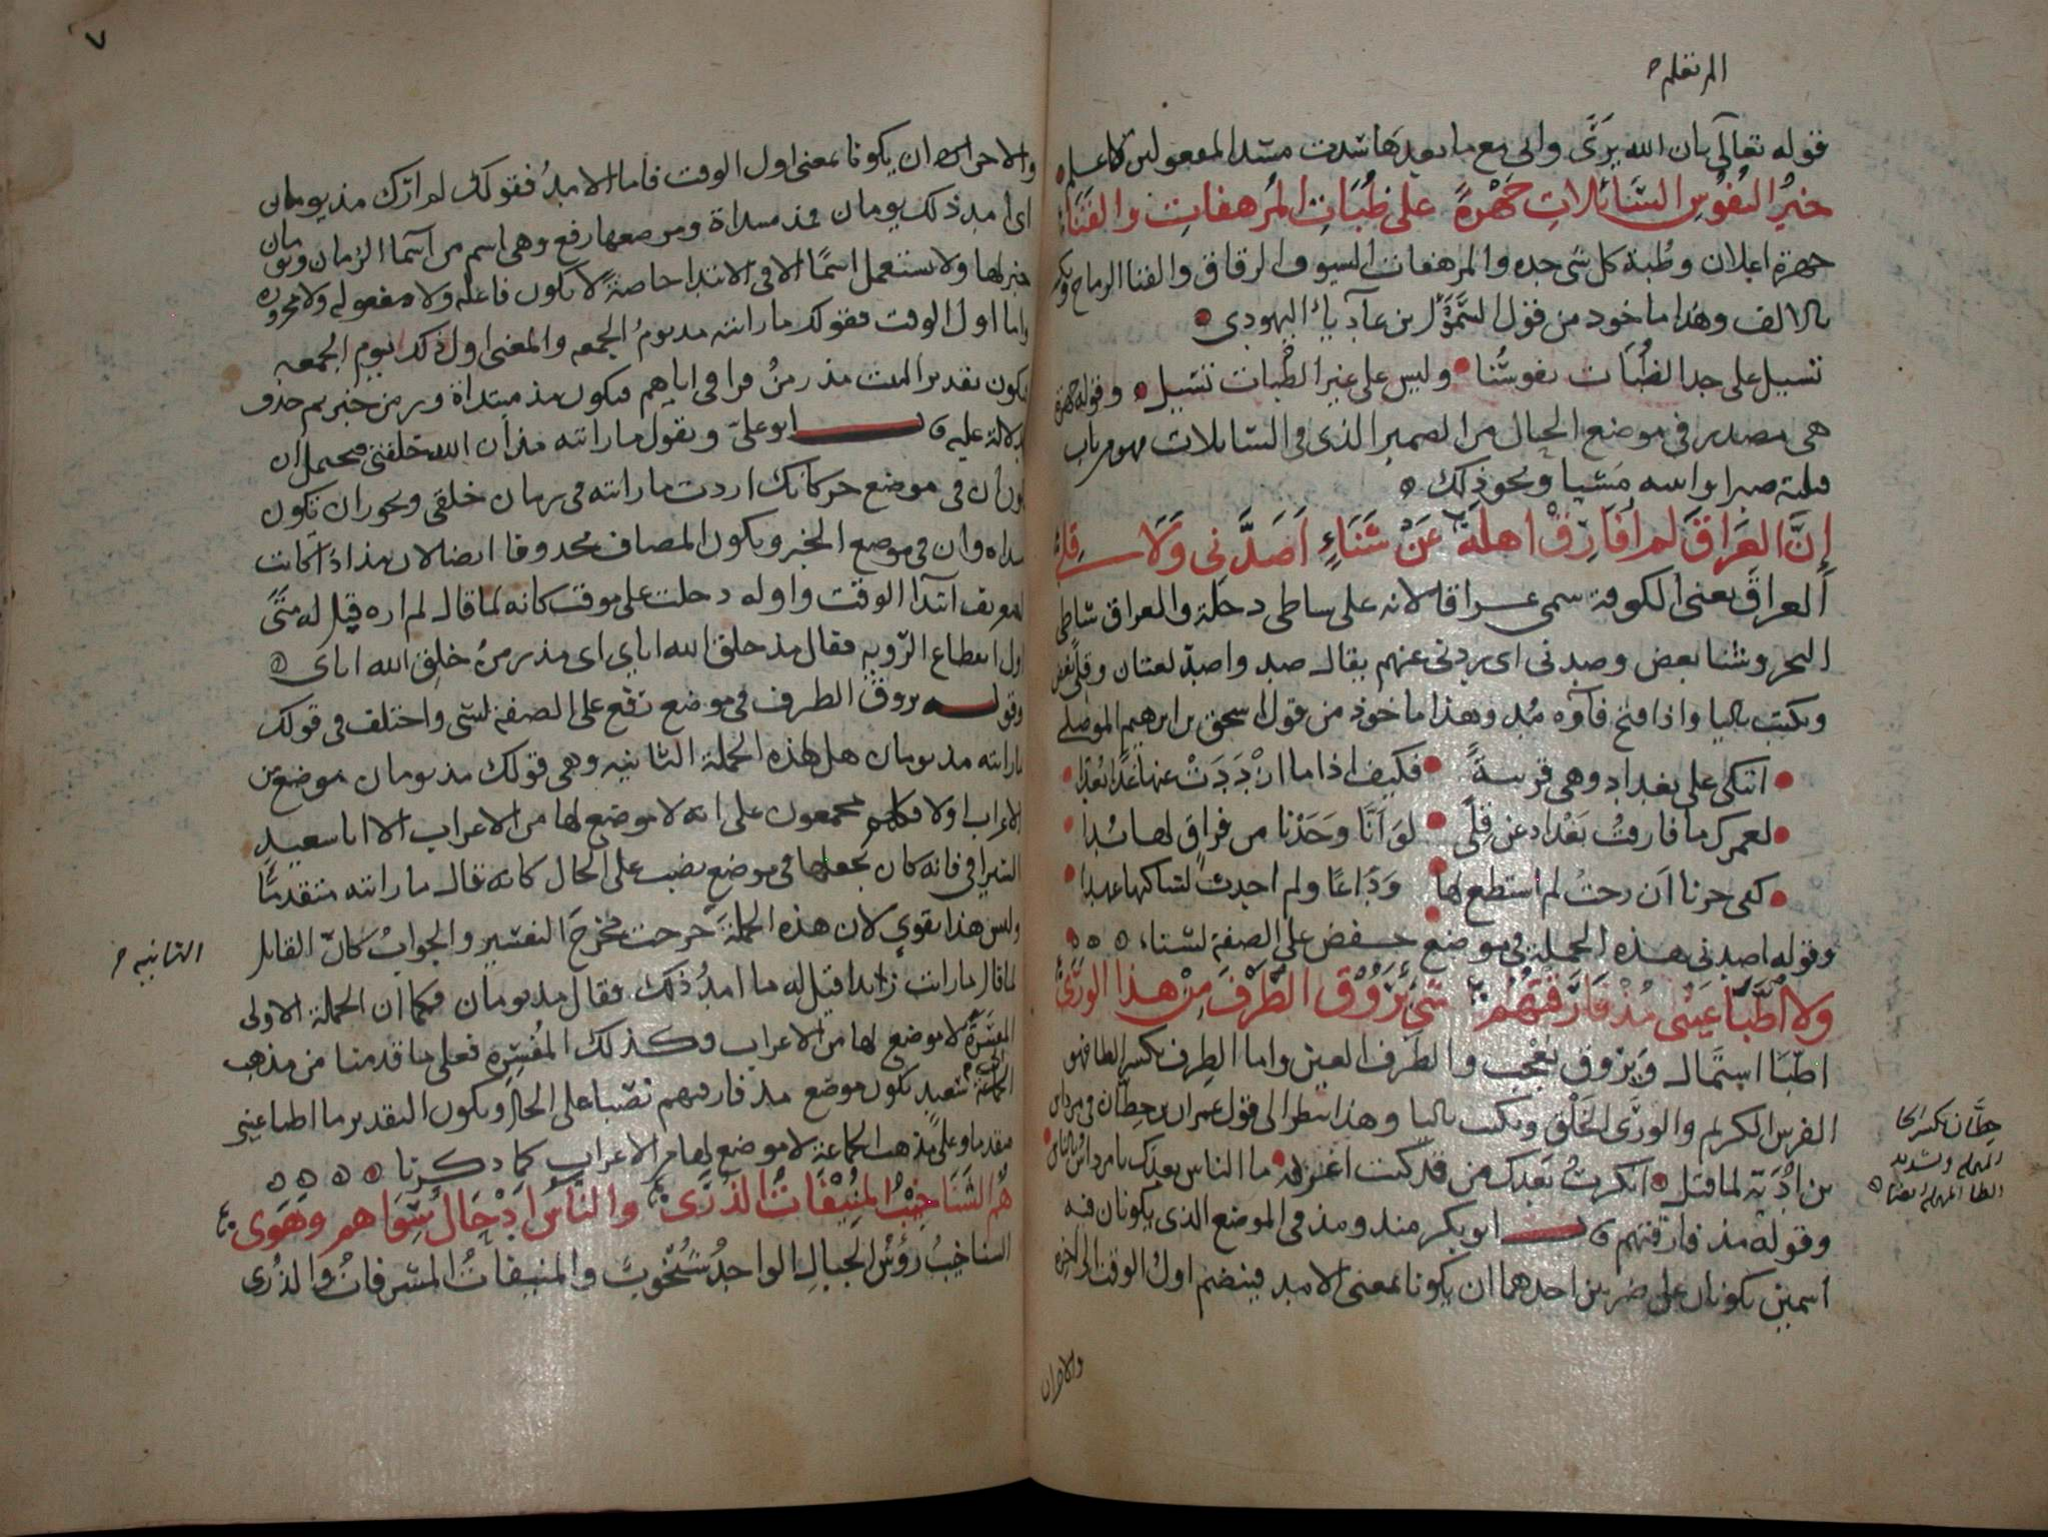 الم تعلم
قوله تعالى بان الله يرى وان مع ما بعدها سدت مسد المفعولين كاعلم
خير النفوس السائلات جهرة على ظبات المرهفات والقنا
جهرة اعلان وظبة كل شى حده والمرهفات السيوف الرقاق والقنا الرماح ويكتب
بالالف وهذا ماخوذ من قول السموأل بن عادياء اليهودى
تسيل على حد الظبات نفوسنا وليس على غير الظبات تسيل وقوله جهرة
هى مصدر فى موضع الحال من الضمير الذى فى السائلات فهو من باب
قتلته صبرا واتيته مشيا ونحو ذلك
إن العراق لم أفارق اهله عن شناء أصدنى ولا قلى
العراق يعنى الكوفة سمى عراقا لانه على شاطى دجلة والعراق شاطى
البحر وشنا بعض وصدنى اى ردنى عنهم يقال صد واصد لغتان وقلى بغض
ويكتب باليا واذا فتح فاؤه مد وهذا ماخوذ من قول اسحق بن ابرهيم الموصلى
اتبكى على بغداد وهى قريبة فكيف اذا ما ازددت عنها غدا بعدا
لعمرك ما فارقت بغداد عن قلى لو أنا وجدنا من فراق لها بدا
كفى حزنا ان رحت لم استطع لها وداعا ولم احدث لساكنها عهدا
وقوله اصدنى هذه الجملة فى موضع خفض على الصفة لشناء
ولا اطبا عينى مذ فارقتهم شئ يروق الطرف من هذا الورى
اطبا استمال ويروق يعجب والطرف العين واما الطرف بكسر الطا فهو
الفرس الكريم والورى الخلق ويكتب باليا وهذا ينظر الى قول عمران بن حطان فى مرداس
بن ادية لما قتل انكرت بعدك من قد كنت اعرفه ما الناس بعدك يا مرداس بالناس
وقوله مذ فارقتهم قال ابو بكر منذ ومذ فى الموضع الذى يكونان فيه
اسمين يكونان على ضربين احدهما ان يكونا بمعنى الامد فينضم اول الوقت الى اخره
حطان بكسر الحا
المهملة وتشديد
الطا المهملة ايضا
والاخران
٧
والاخر ان يكونا بمعنى اول الوقت فاما الامد فقولك لم ارك مذ يومان
اى امد ذلك يومان فمذ مبتداة وموضعها رفع وهى اسم من اسما الزمان ويومان
خبر لها ولا تستعمل اسما الا فى الابتدا خاصة لا تكون فاعلة ولا مفعولة ولا مجرورة
واما اول الوقت فقولك ما رايته مذ يوم الجمعة والمعنى اول ذلك يوم الجمعة
فيكون تقدير البيت مذ زمن فراقى اياهم فيكون مذ مبتداة وزمن خبر ثم حذف
لدلالة عليه قال ابو على وتقول ما رايته مذ ان الله خلقنى فيحتمل ان
يكون ان فى موضع جر كانك اردت ما رايته فى زمان خلقى ويجوز ان تكون
مبتداة وان فى موضع الخبر ويكون المضاف محذوفا ايضا لان مذ اذا كانت
لتعريف ابتدا الوقت واوله دخلت على موقت كانه لما قال لم اره قيل له متى
اول انقطاع الروية فقال مذ خلق الله اياى اى مذ زمن خلق الله اياى
وقوله يروق الطرف فى موضع رفع على الصفة لشى واختلف فى قولك
ما رايته مذ يومان هل لهذه الجملة الثانية وهى قولك مذ يومان موضع من
الاعراب او لا فكلهم مجمعون على انه لا موضع لها من الاعراب الا ابا سعيد
السيرافى فانه كان يجعلها فى موضع نصب على الحال كانه قال ما رايته متقدما
وليس هذا بقوى لان هذه الجملة خرجت مخرج التفسير والجواب كان القائل
لما قال ما رايت زيدا قيل له ما امد ذلك فقال مذ يومان فكما ان الجملة الاولى
المفسرة لا موضع لها من الاعراب فكذلك المفسرة فعلى ما قدمنا من مذهب
ابى سعيد يكون موضع مذ فارقتهم نصبا على الحال ويكون التقدير ما اطبا عينى
متقدما وعلى مذهب الجماعة لا موضع لها من الاعراب كما ذكرنا
هم الشناخيب المنيفات الذرى والناس ادحال سواهم وهوى
الشناخيب رؤس الجبال الواحد شنخوب والمنيفات المشرفات والذرى
الثانية